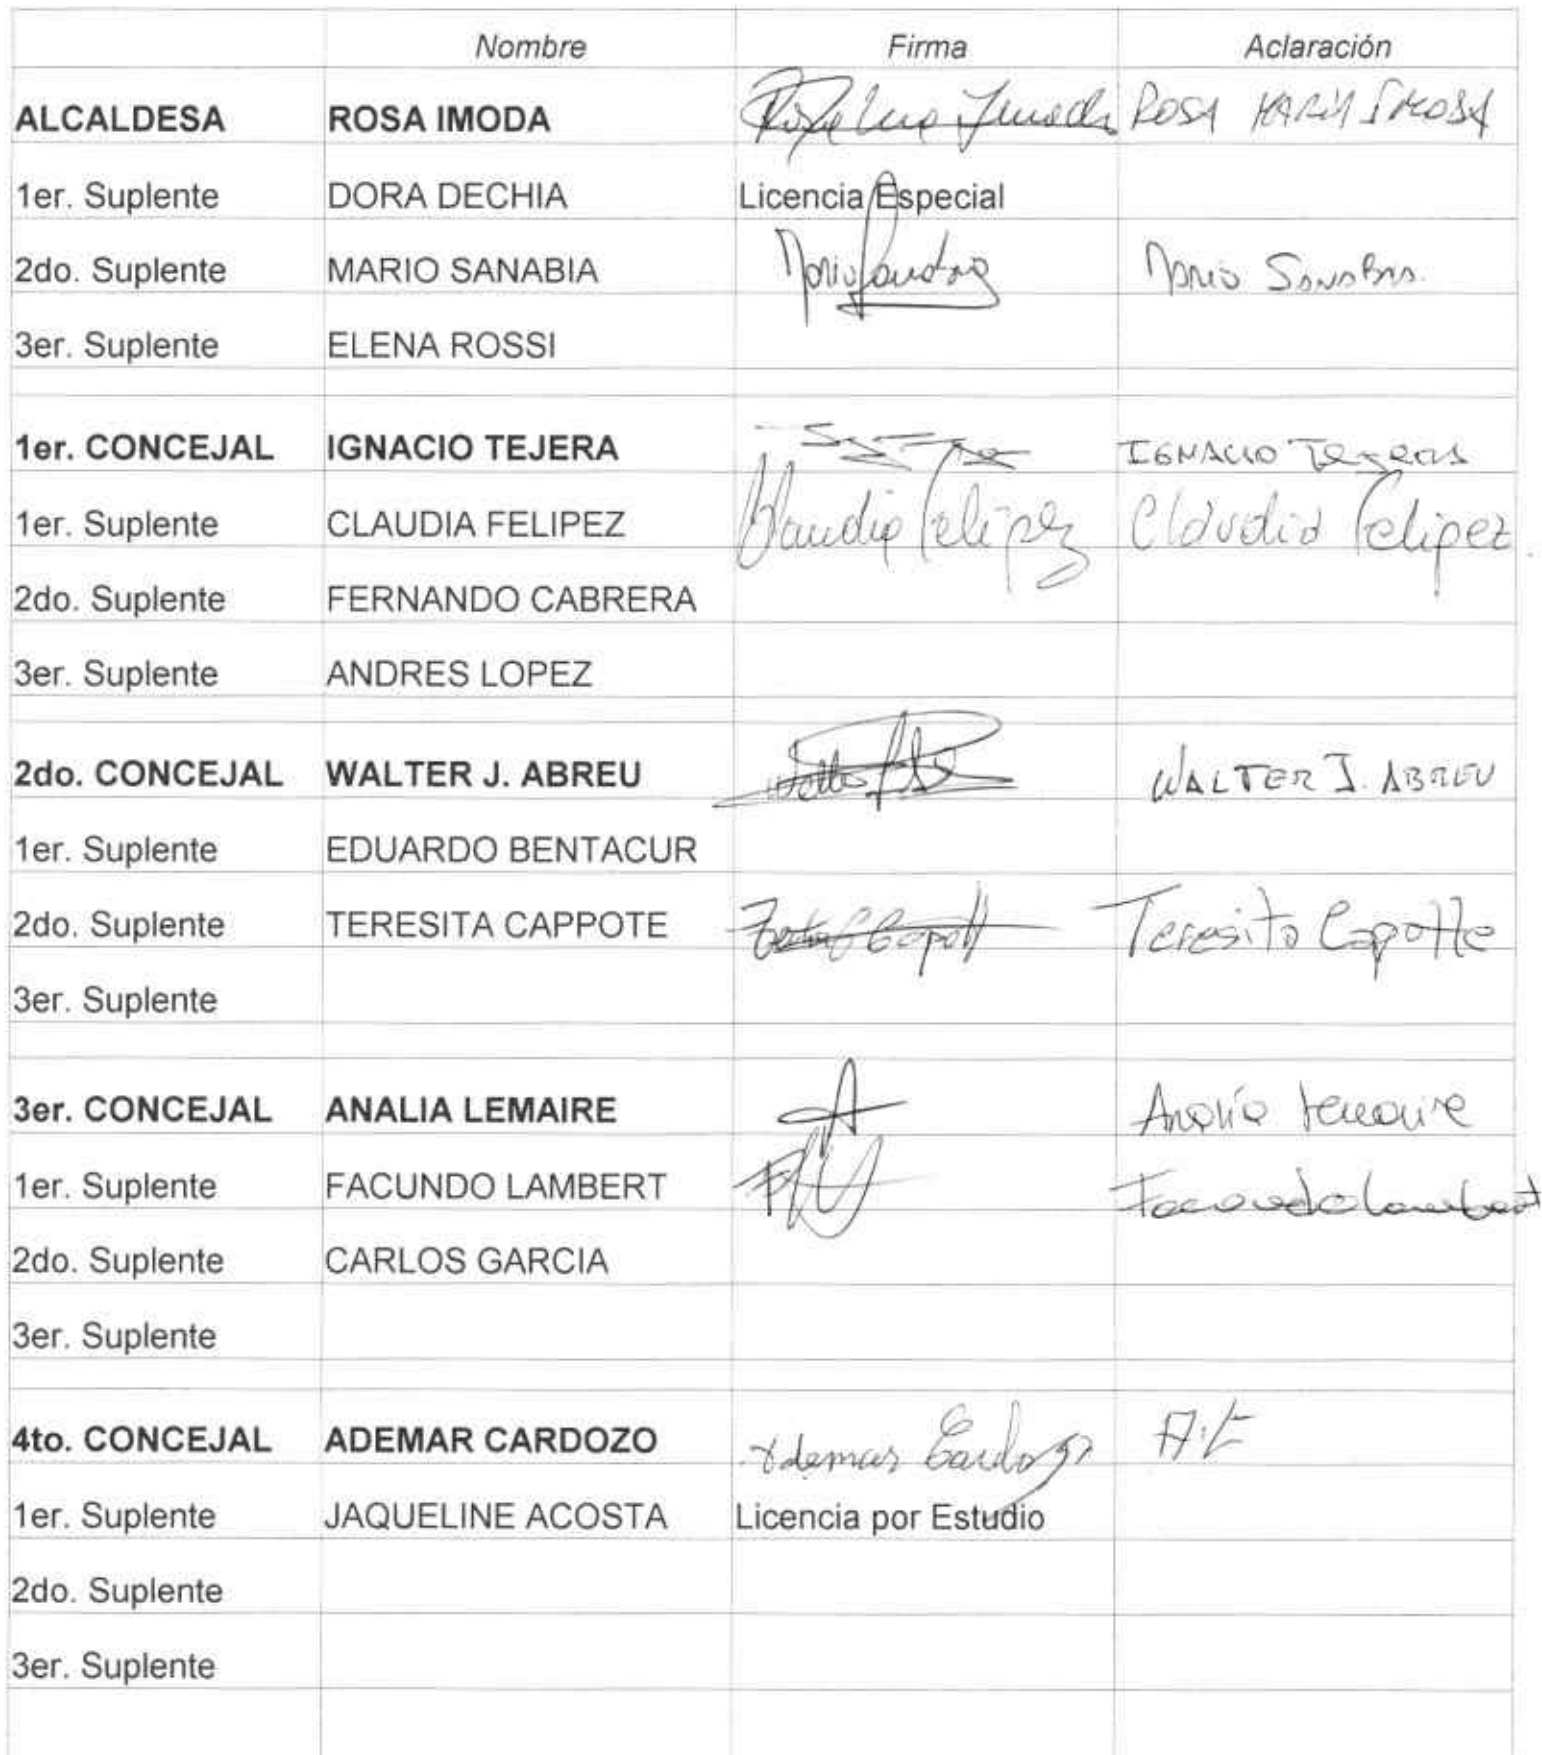 Nombre Firma Aclaración
ALCALDESA ROSA IMODA ROSA MARIA IMODA
1er. Suplente DORA DECHIA Licencia Especial
2do. Suplente MARIO SANABIA Mario Sanabia Mario Sanabia.
3er. Suplente ELENA ROSSI
1er. CONCEJAL IGNACIO TEJERA IGNACIO Tejera
1er. Suplente CLAUDIA FELIPEZ Claudia Felipez Claudia Felipez
2do. Suplente FERNANDO CABRERA
3er. Suplente ANDRES LOPEZ
2do. CONCEJAL WALTER J. ABREU WALTER J. ABREU
1er. Suplente EDUARDO BENTACUR
2do. Suplente TERESITA CAPPOTE Teresita Capotte
3er. Suplente
3er. CONCEJAL ANALIA LEMAIRE Analía Lemaire
1er. Suplente FACUNDO LAMBERT Facundo Lambert
2do. Suplente CARLOS GARCIA
3er. Suplente
4to. CONCEJAL ADEMAR CARDOZO Ademar Cardozo
1er. Suplente JAQUELINE ACOSTA Licencia por Estudio
2do. Suplente
3er. Suplente